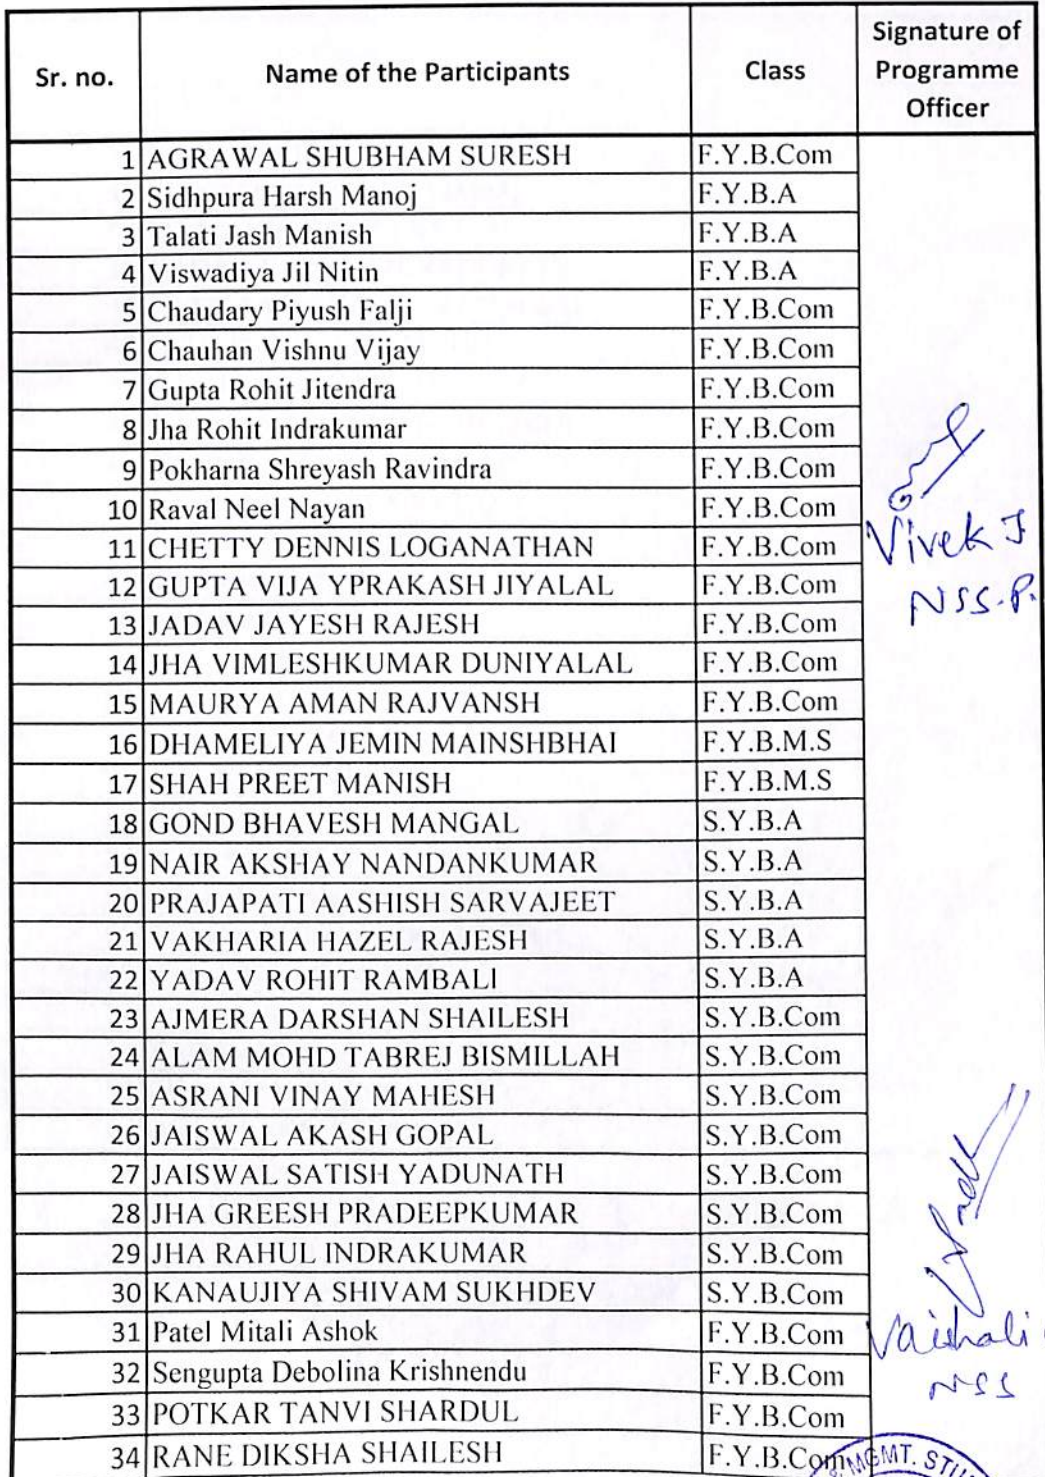 Sr. no. Name of the Participants Class Signature of Programme Officer
1 AGRAWAL SHUBHAM SURESH F.Y.B.Com
2 Sidhpura Harsh Manoj F.Y.B.A
3 Talati Jash Manish F.Y.B.A
4 Viswadiya Jil Nitin F.Y.B.A
5 Chaudary Piyush Falji F.Y.B.Com
6 Chauhan Vishnu Vijay F.Y.B.Com
7 Gupta Rohit Jitendra F.Y.B.Com
8 Jha Rohit Indrakumar F.Y.B.Com
9 Pokharna Shreyash Ravindra F.Y.B.Com
10 Raval Neel Nayan F.Y.B.Com
11 CHETTY DENNIS LOGANATHAN F.Y.B.Com
Vivek J
12 GUPTA VIJA YPRAKASH JIYALAL F.Y.B.Com
NSS.P.
13 JADAV JAYESH RAJESH F.Y.B.Com
14 JHA VIMLESHKUMAR DUNIYALAL F.Y.B.Com
15 MAURYA AMAN RAJVANSH F.Y.B.Com
16 DHAMELIYA JEMIN MAINSHBHAI F.Y.B.M.S
17 SHAH PREET MANISH F.Y.B.M.S
18 GOND BHAVESH MANGAL S.Y.B.A
19 NAIR AKSHAY NANDANKUMAR S.Y.B.A
20 PRAJAPATI AASHISH SARVAJEET S.Y.B.A
21 VAKHARIA HAZEL RAJESH S.Y.B.A
22 YADAV ROHIT RAMBALI S.Y.B.A
23 AJMERA DARSHAN SHAILESH S.Y.B.Com
24 ALAM MOHD TABREJ BISMILLAH S.Y.B.Com
25 ASRANI VINAY MAHESH S.Y.B.Com
26 JAISWAL AKASH GOPAL S.Y.B.Com
27 JAISWAL SATISH YADUNATH S.Y.B.Com
28 JHA GREESH PRADEEPKUMAR S.Y.B.Com
29 JHA RAHUL INDRAKUMAR S.Y.B.Com
30 KANAUJIYA SHIVAM SUKHDEV S.Y.B.Com
31 Patel Mitali Ashok F.Y.B.Com
Vaishali
32 Sengupta Debolina Krishnendu F.Y.B.Com
NSS
33 POTKAR TANVI SHARDUL F.Y.B.Com
34 RANE DIKSHA SHAILESH F.Y.B.Com
MGMT.